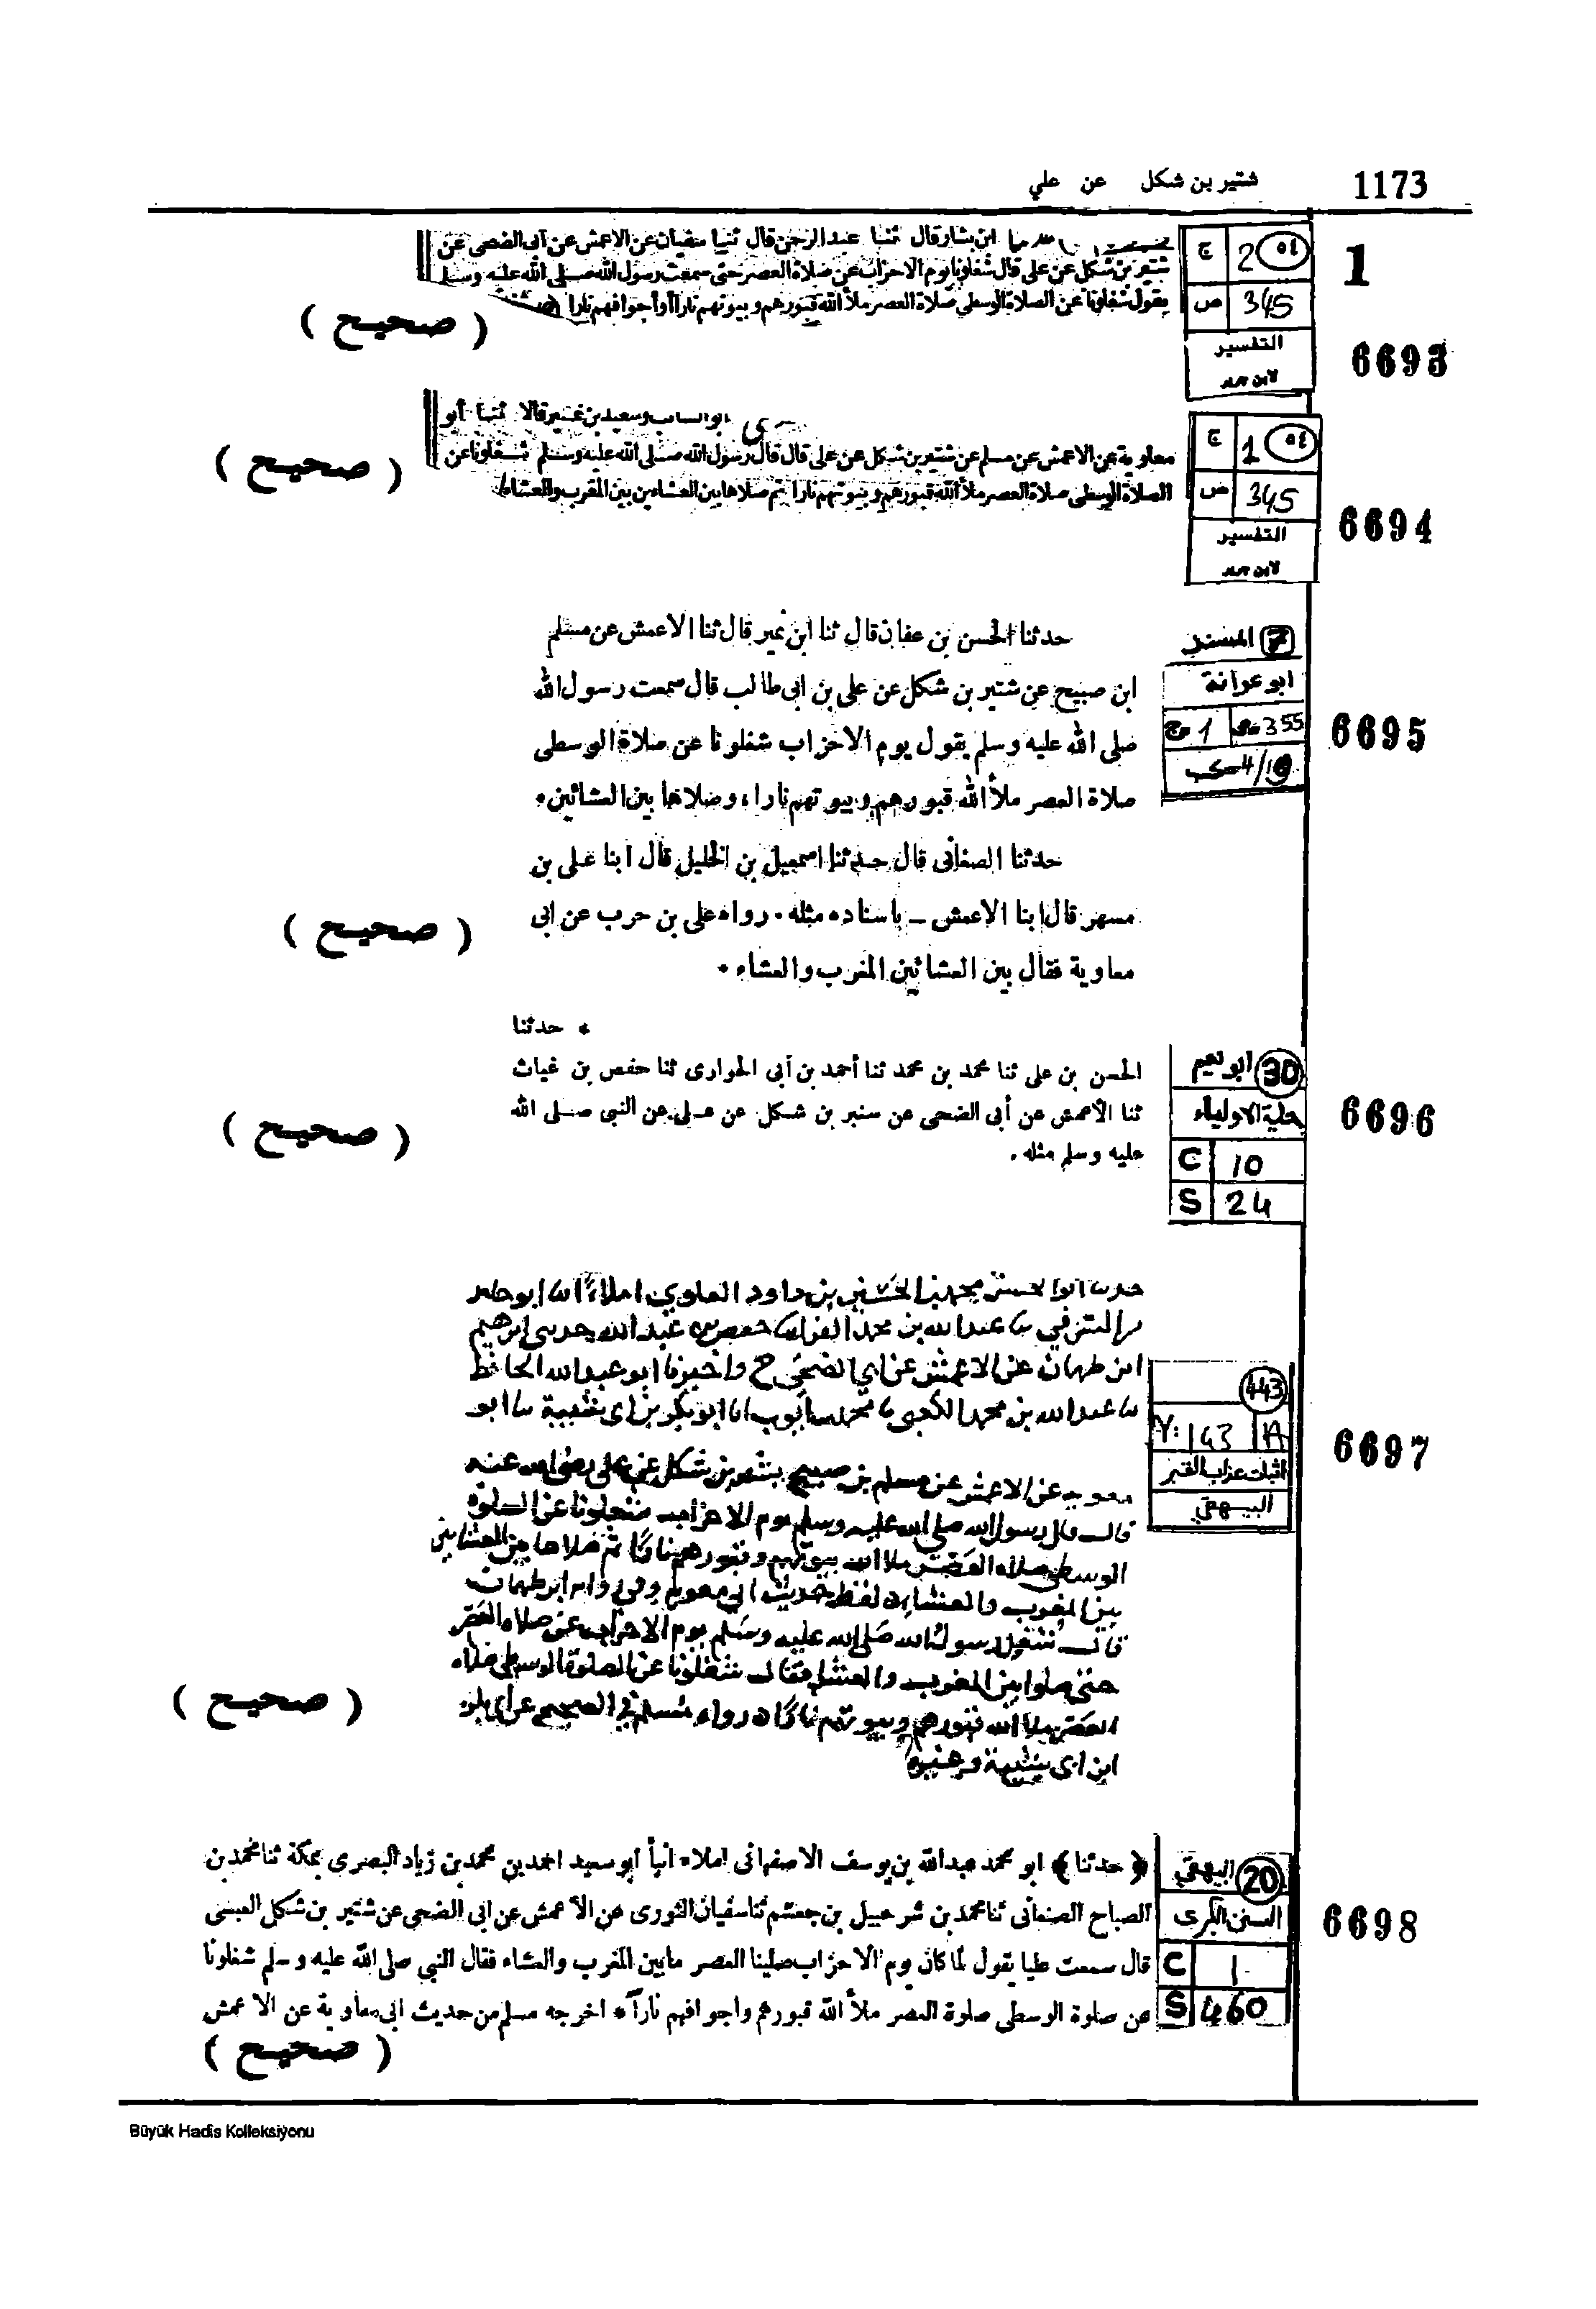 1173
شتير بن شكل عن علي
1
ابن بشار قال ثنا عبد الرحمن قال ثنا سفيان عن الاعمش عن أبى الضحى عن
شتير بن شكل عن على قال شغلونا يوم الاحزاب عن صلاة العصر حتى سمعت رسول الله صلى الله عليه وسلم
يقول شغلونا عن الصلاة الوسطى صلاة العصر ملأ الله قبورهم وبيوتهم نارا أو أجوافهم نارا
( صحيح )
ج 2 ٥٤
ص 345
التفسير
لابن جرير
6693
أبو السائب وسعيد بن نمير قالا ثنا أبو
معاوية عن الاعمش عن مسلم عن شتير بن شكل عن على قال قال رسول الله صلى الله عليه وسلم شغلونا عن
الصلاة الوسطى صلاة العصر ملأ الله قبورهم وبيوتهم نارا ثم صلاها بين العشاءين بين المغرب والعشاء
( صحيح )
ج 1 ٥٤
ص 345
التفسير
لابن جرير
6694
حدثنا الحسن بن عفان قال ثنا ابن نمير قال ثنا الاعمش عن مسلم
ابن صبيح عن شتير بن شكل عن على بن ابى طالب قال سمعت رسول الله
صلى الله عليه وسلم يقول يوم الاحزاب شغلونا عن صلاة الوسطى
صلاة العصر ملأ الله قبورهم وبيوتهم نارا، وصلاها بين العشائين.
حدثنا الصغانى قال حدثنا اسمعيل بن الخليل قال ابنا على بن
مسهر قال ابنا الاعمش ــ باسناده مثله. رواه على بن حرب عن ابى
معاوية فقال بين العشائين المغرب والعشاء.
( صحيح )
7 المسند
ابو عوانة
ج 1 ص 355
4/19
6695
* حدثنا
الحسن بن على ثنا محمد بن محمد ثنا أحمد بن أبى الحوارى ثنا حفص بن غياث
ثنا الأعمش عن أبى الضحى عن سنير بن شكل عن على عن النبى صلى الله
عليه وسلم مثله .
( صحيح )
30 ابو نعيم
حلية الاولياء
C 10
S 24
6696
محمد بن الحسين بن داود العلوي املاء
عبد الله بن محمد حفص بن عبد الله حدثني ابرهيم
ابن طهمان عن الاعمش عن ابي الضحى ح واخبرنا ابو عبد الله الحافظ
عبد الله بن محمد الكعبي محمد بن ايوب انا ابو بكر بن ابي شيبة ثنا ابو
معويه عن الاعمش عن مسلم بن صبيح شتير بن شكل عن علي رضي الله عنه
قال قال رسول الله صلى الله عليه وسلم يوم الاحزاب شغلونا عن الصلوة
الوسطى صلاه العصر ملا الله بيوتهم وقبورهم نارا ثم صلاها بين العشائين
بين المغرب والعشاء لفظ حديث ابي معويه وفي روايه ابن طهمان
قال شغل رسول الله صلى الله عليه وسلم يوم الاحزاب عن صلاه العصر
حتى صلوا بين المغرب والعشاء فقال شغلونا عن الصلوة الوسطى صلاه
العصر ملا الله قبورهم وبيوتهم نارا رواه مسلم في الصحيح عن ابي بكر
ابن ابي شيبة وغيره
( صحيح )
443
143
اثبات عذاب القبر
البيهقي
6697
﴿ حدثنا ﴾ ابو محمد عبد الله بن يوسف الاصفهانى املاء انبأ ابو سعيد احمد بن محمد بن زياد البصرى بمكة ثنا محمد بن
الصباح الصنعانى ثنا محمد بن شرحبيل بن جعشم ثنا سفيان الثورى عن الأعمش عن ابى الضحى عن شتير بن شكل العبسى
قال سمعت عليا يقول لما كان يوم الاحزاب صلينا العصر ما بين المغرب والعشاء فقال النبى صلى الله عليه وسلم شغلونا
عن صلوة الوسطى صلوة العصر ملأ الله قبورهم واجوافهم ناراً * اخرجه مسلم من حديث ابى معاوية عن الاعمش
( صحيح )
20 البيهقي
السنن الكبرى
C 1
S 460
6698
Büyük Hadis Kolleksiyonu